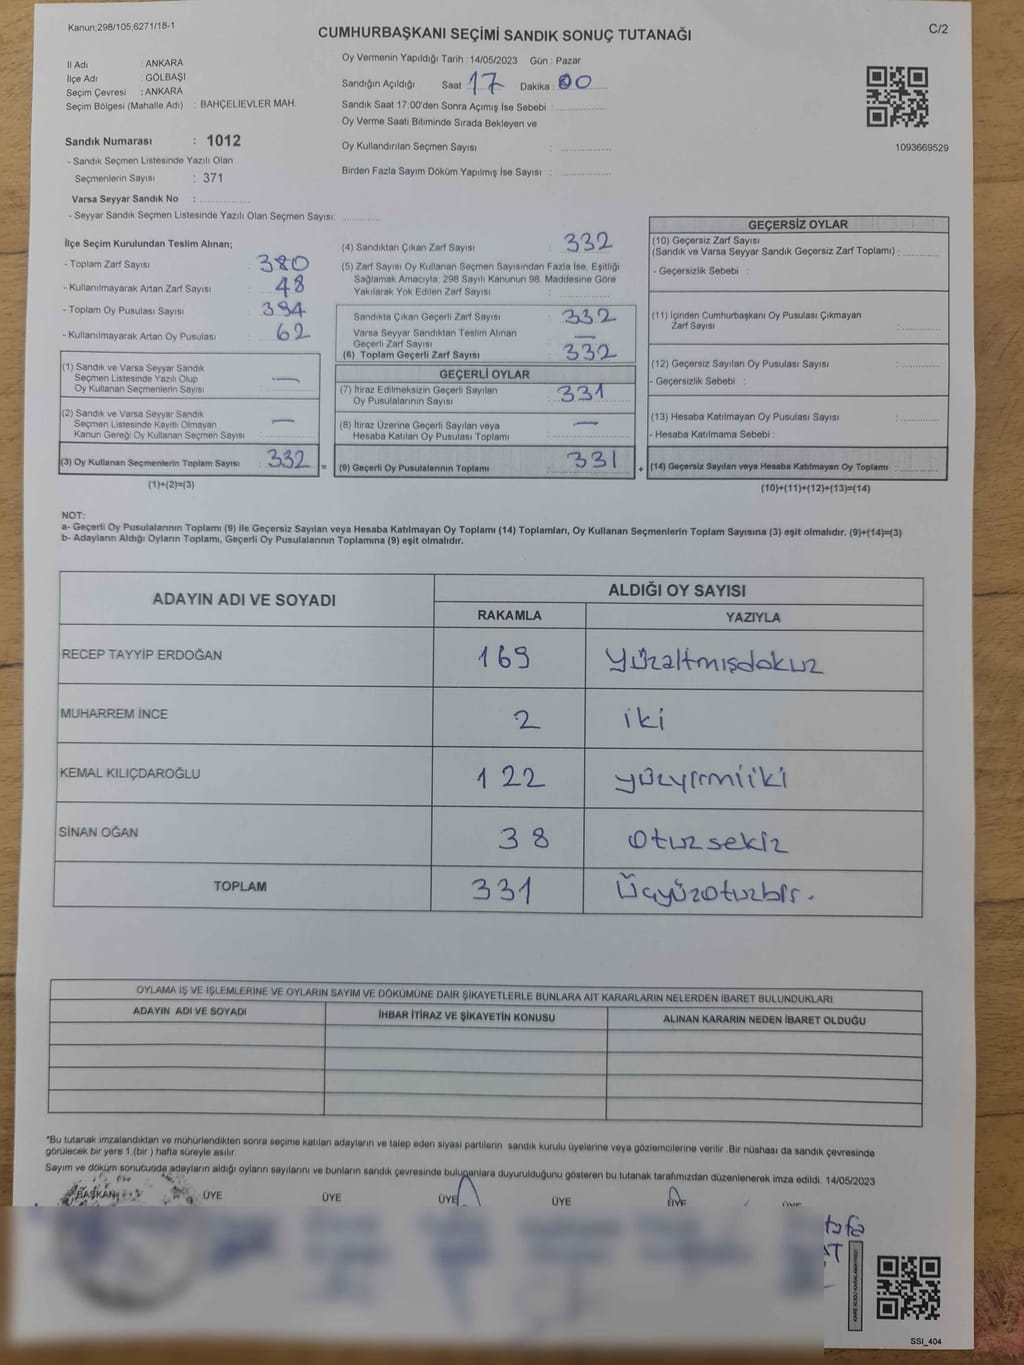 Kanun;298/105;6271/18-1
CUMHURBAŞKANI SEÇİMİ SANDIK SONUÇ TUTANAĞI
C/2
İl Adı : ANKARA
İlçe Adı : GÖLBAŞI
Seçim Çevresi : ANKARA
Seçim Bölgesi (Mahalle Adı) : BAHÇELİEVLER MAH.
Sandık Numarası : 1012
- Sandık Seçmen Listesinde Yazılı Olan
Seçmenlerin Sayısı : 371
Varsa Seyyar Sandık No : ..................
- Seyyar Sandık Seçmen Listesinde Yazılı Olan Seçmen Sayısı: ..............
Oy Vermenin Yapıldığı Tarih : 14/05/2023 Gün : Pazar
Sandığın Açıldığı Saat 17 Dakika : 00
Sandık Saat 17:00'den Sonra Açımış İse Sebebi : ..................
Oy Verme Saati Bitiminde Sırada Bekleyen ve
Oy Kullandırılan Seçmen Sayısı : ..................
Birden Fazla Sayım Döküm Yapılmış İse Sayısı : ..................
1093669529
İlçe Seçim Kurulundan Teslim Alınan;
- Toplam Zarf Sayısı : 380
- Kullanılmayarak Artan Zarf Sayısı : 48
- Toplam Oy Pusulası Sayısı : 394
- Kullanılmayarak Artan Oy Pusulası : 62
(1) Sandık ve Varsa Seyyar Sandık
Seçmen Listesinde Yazılı Olup
Oy Kullanan Seçmenlerin Sayısı : —
(2) Sandık ve Varsa Seyyar Sandık
Seçmen Listesinde Kayıtlı Olmayan
Kanun Gereği Oy Kullanan Seçmen Sayısı : —
(3) Oy Kullanan Seçmenlerin Toplam Sayısı : 332 =
(1)+(2)=(3)
(4) Sandıktan Çıkan Zarf Sayısı : 332
(5) Zarf Sayısı Oy Kullanan Seçmen Sayısından Fazla İse, Eşitliği
Sağlamak Amacıyla, 298 Sayılı Kanunun 98. Maddesine Göre
Yakılarak Yok Edilen Zarf Sayısı : ..................
Sandıkta Çıkan Geçerli Zarf Sayısı : 332
Varsa Seyyar Sandıktan Teslim Alınan
Geçerli Zarf Sayısı : —
(6) Toplam Geçerli Zarf Sayısı : 332
GEÇERLİ OYLAR
(7) İtiraz Edilmeksizin Geçerli Sayılan
Oy Pusulalarının Sayısı : 331
(8) İtiraz Üzerine Geçerli Sayılan veya
Hesaba Katılan Oy Pusulası Toplamı : —
(9) Geçerli Oy Pusulalarının Toplamı : 331 +
GEÇERSİZ OYLAR
(10) Geçersiz Zarf Sayısı
(Sandık ve Varsa Seyyar Sandık Geçersiz Zarf Toplamı) : ............
- Geçersizlik Sebebi :
(11) İçinden Cumhurbaşkanı Oy Pusulası Çıkmayan
Zarf Sayısı : ............
(12) Geçersiz Sayılan Oy Pusulası Sayısı : ............
- Geçersizlik Sebebi :
(13) Hesaba Katılmayan Oy Pusulası Sayısı : ............
- Hesaba Katılmama Sebebi :
(14) Geçersiz Sayılan veya Hesaba Katılmayan Oy Toplamı : ............
(10)+(11)+(12)+(13)=(14)
NOT:
a- Geçerli Oy Pusulalarının Toplamı (9) ile Geçersiz Sayılan veya Hesaba Katılmayan Oy Toplamı (14) Toplamları, Oy Kullanan Seçmenlerin Toplam Sayısına (3) eşit olmalıdır. (9)+(14)=(3)
b- Adayların Aldığı Oyların Toplamı, Geçerli Oy Pusulalarının Toplamına (9) eşit olmalıdır.
ADAYIN ADI VE SOYADI ALDIĞI OY SAYISI
RAKAMLA YAZIYLA
RECEP TAYYİP ERDOĞAN 169 Yüzaltmışdokuz
MUHARREM İNCE 2 iki
KEMAL KILIÇDAROĞLU 122 yüzyirmiiki
SİNAN OĞAN 38 Otuzsekiz
TOPLAM 331 Üçyüzotuzbir.
OYLAMA İŞ VE İŞLEMLERİNE VE OYLARIN SAYIM VE DÖKÜMÜNE DAİR ŞİKAYETLERLE BUNLARA AİT KARARLARIN NELERDEN İBARET BULUNDUKLARI
ADAYIN ADI VE SOYADI İHBAR İTİRAZ VE ŞİKAYETİN KONUSU ALINAN KARARIN NEDEN İBARET OLDUĞU
"Bu tutanak imzalandıktan ve mühürlendikten sonra seçime katılan adayların ve talep eden siyasi partilerin sandık kurulu üyelerine veya gözlemcilerine verilir. Bir nüshası da sandık çevresinde
görülecek bir yere 1 (bir ) hafta süreyle asılır.
Sayım ve döküm sonucunda adayların aldığı oyların sayılarını ve bunların sandık çevresinde bulunanlara duyurulduğunu gösteren bu tutanak tarafımızdan düzenlenerek imza edildi. 14/05/2023
BAŞKAN ÜYE ÜYE ÜYE ÜYE ÜYE ÜYE
SSI_404